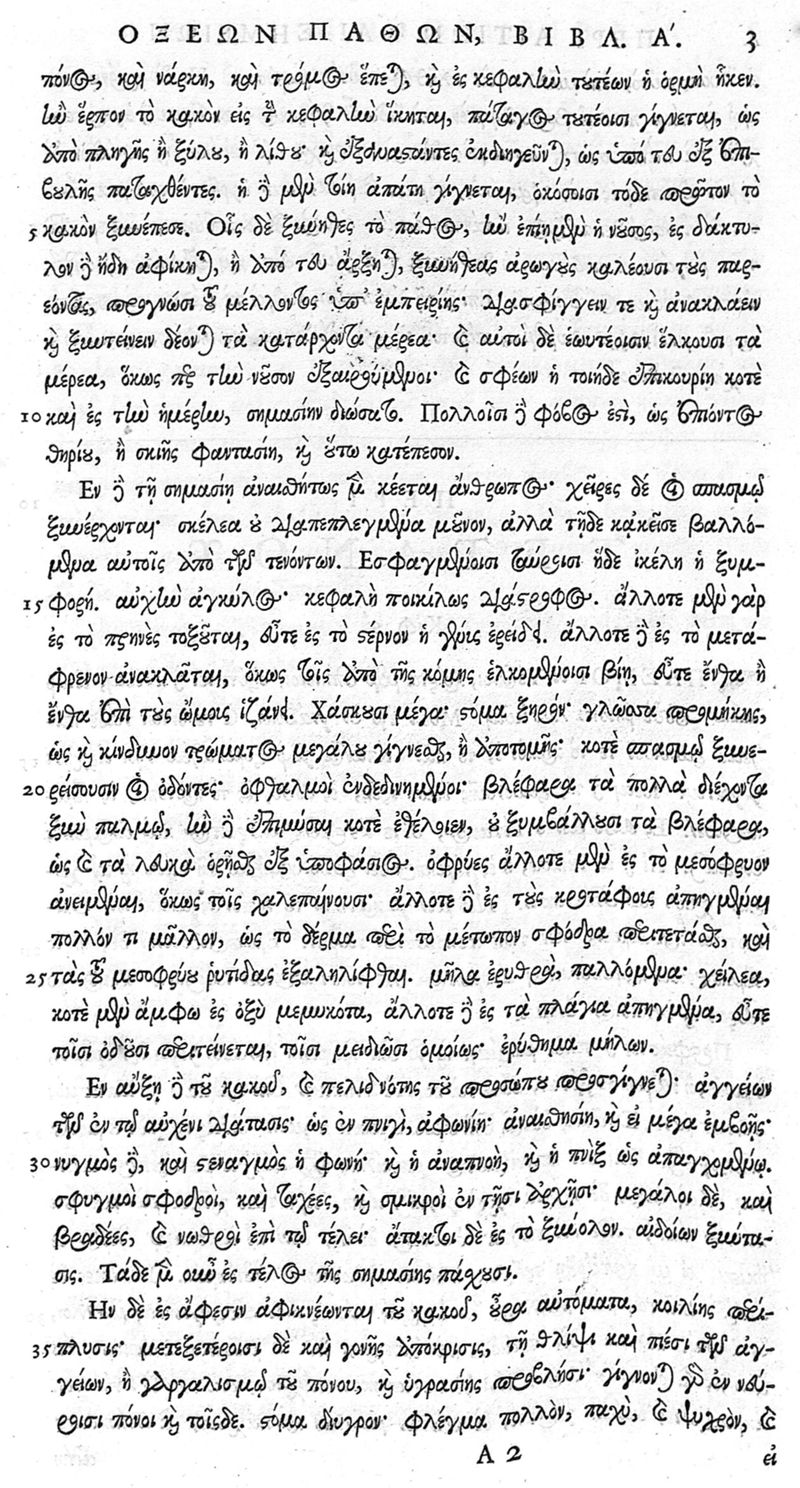 ΟΞΕΩΝ ΠΑΘΩΝ, ΒΙΒΛ. Α΄. 3
πόνος, καὶ νάρκη, καὶ τρόμος ἕπεται, καὶ ἐς κεφαλὴν τουτέων ἡ ὁρμὴ ἧκεν.
ἢν ἕρπον τὸ κακὸν εἰς τὴν κεφαλὴν ἵκηται, πάταγος τουτέοισι γίγνεται, ὡς
ἀπὸ πληγῆς ἢ ξύλου, ἢ λίθου· καὶ ἐξαναστάντες ἐκδιηγεῦνται, ὡς ὑπό του ἐξ ἐπι-
βουλῆς παταχθέντες. ἡ δὲ μὲν ταύτη ἀπάτη γίγνεται, ὁκόσοισι τόδε πρῶτον τὸ
5 κακὸν ξυνέπεσε. Οἷς δὲ ξύνηθες τὸ πάθος, ἢν ἐπίῃ μὲν ἡ νοῦσος, ἐς δάκτυ-
λον δὲ ἤδη ἀφίκηται, ἢ ἀπό του ἄρξηται, ξυνήθεας ἀρωγοὺς καλέουσι τοὺς παρ-
εόντας, προγνώσι τοῦ μέλλοντος ὑπ᾽ ἐμπειρίης· διασφίγγειν τε καὶ ἀνακλάειν
καὶ ξυντείνειν δέονται τὰ κατάρχοντα μέρεα· καὶ αὐτοὶ δὲ ἑωυτέοισιν ἕλκουσι τὰ
μέρεα, ὅκως περ τὴν νοῦσον ἐξαιρεύμενοι· καὶ σφέων ἡ τοιήδε ἐπικουρίη κοτὲ
10 καὶ ἐς τὴν ἡμέρην, σημασίην διώσατο. Πολλοῖσι δὲ φόβος ἐστὶ, ὡς ἐπιόντος
θηρίου, ἢ σκιῆς φαντασίη, καὶ οὕτω κατέπεσον.
Εν δὲ τῇ σημασίῃ ἀναισθήτως μὲν κέεται ἄνθρωπος· χεῖρες δέ οἱ σπασμῷ
ξυνέρχονται· σκέλεα οὐ διαπεπλεγμένα μοῦνον, ἀλλὰ τῇδε κἀκεῖσε βαλλό-
μενα αὐτοῖς ἀπὸ τῶν τενόντων. Εσφαγμένοισι ταύροισι ἥδε ἰκέλη ἡ ξυμ-
15 φορή. αὐχὴν ἀγκύλος· κεφαλὴ ποικίλως διάστροφος. ἄλλοτε μὲν γὰρ
ἐς τὸ πρηνὲς τοξοῦται, εὖτε ἐς τὸ στέρνον ἡ γένυς ἐρείδει. ἄλλοτε δὲ ἐς τὸ μετά-
φρενον ἀνακλᾶται, ὅκως τοῖς ἀπὸ τῆς κόμης ἑλκομένοισι βίῃ, εὖτε ἔνθα ἢ
ἔνθα ἐπὶ τοὺς ὤμοις ἱζάνει. Χάσκουσι μέγα· στόμα ξηρόν· γλῶσσα προμήκης,
ὡς καὶ κίνδυνον τρώματος μεγάλου γίγνεσθαι, ἢ ἀποτομῆς· κοτὲ σπασμῷ ξυνε-
20 ρείσουσιν οἱ ὀδόντες· ὀφθαλμοὶ ἐνδεδινημένοι· βλέφαρα τὰ πολλὰ διέχοντα
ξὺν παλμῷ, ἢν δὲ ἐπιμύσαι κοτὲ ἐθέλοιεν, οὐ ξυμβάλλουσι τὰ βλέφαρα,
ὡς καὶ τὰ λευκὰ ὁρῆσθαι ἐξ ὑποφάσιος. ὀφρύες ἄλλοτε μὲν ἐς τὸ μεσόφρυον
ἀνειμέναι, ὅκως τοῖς χαλεπαίνουσι· ἄλλοτε δὲ ἐς τοὺς κροτάφοις ἀπηγμέναι
πολλόν τι μᾶλλον, ὡς τὸ δέρμα περὶ τὸ μέτωπον σφόδρα περιτετάσθαι, καὶ
25 τὰς τοῦ μεσοφρύου ῥυτίδας ἐξαληλίφθαι. μῆλα ἐρυθρὰ, παλλόμενα· χείλεα,
κοτὲ μὲν ἄμφω ἐς ὀξὺ μεμυκότα, ἄλλοτε δὲ ἐς τὰ πλάγια ἀπηγμένα, εὖτε
τοῖσι ὀδοῦσι περιτείνεται, τοῖσι μειδιῶσι ὁμοίως· ἐρύθημα μήλων.
Εν αὔξῃ δὲ τοῦ κακοῦ, καὶ πελιδνότης τοῦ προσώπου προσγίγνεται· ἀγγείων
τῶν ἐν τῷ αὐχένι διάτασις· ὡς ἐν πνιγὶ, ἀφωνίη· ἀναισθησίη, καὶ εἰ μέγα ἐμβοῇς·
30 νυγμὸς δὲ, καὶ στεναγμὸς ἡ φωνή· καὶ ἡ ἀναπνοὴ, καὶ ἡ πνὶξ ὡς ἀπαγχομένῳ.
σφυγμοὶ σφοδροὶ, καὶ ταχέες, καὶ σμικροὶ ἐν τῇσι ἀρχῇσι· μεγάλοι δὲ, καὶ
βραδέες, καὶ νωθροὶ ἐπὶ τῷ τέλει· ἄτακτοι δὲ ἐς τὸ ξύνολον. αἰδοίων ξύντα-
σις. Τάδε μὲν οὖν ἐς τέλος τῆς σημασίης πάσχουσι.
Ην δὲ ἐς ἄφεσιν ἀφικνέωνται τοῦ κακοῦ, οὖρα αὐτόματα, κοιλίης περί-
35 πλυσις· μετεξετέροισι δὲ καὶ γονῆς ἀπόκρισις, τῇ θλίψι καὶ πιέσι τῶν ἀγ-
γείων, ἢ γαργαλισμῷ τοῦ πόνου, καὶ ὑγρασίης προβλήσι· γίγνονται γὰρ ἐν νεύ-
ροισι πόνοι καὶ τοῖσδε. στόμα δίυγρον· φλέγμα πολλὸν, παχὺ, καὶ ψυχρὸν, καὶ
Α 2 εἰ